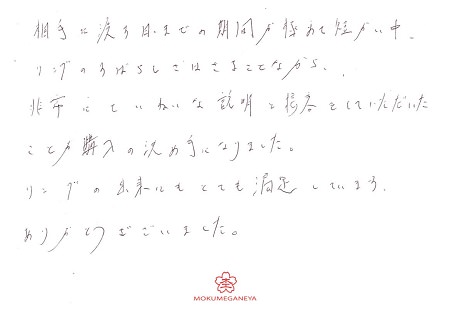 相手に渡す日までの期間が極めて短かい中、
リングのすばらしさはさることながら、
非常にていねいな説明と接客をしていただいた
ことが購入の決め手になりました。
リングの出来にもとても満足しています。
ありがとうございました。
MOKUMEGANEYA